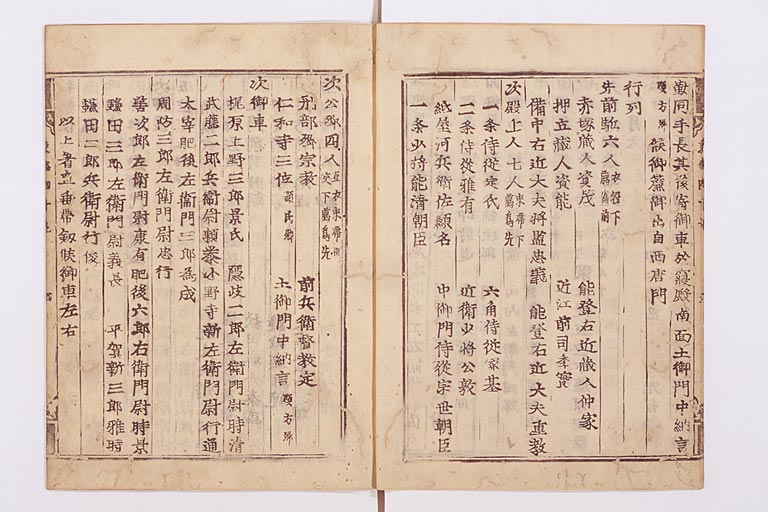 嚴同手長其後寄御車於寢殿南面土御門中納言
顯方卿候御簾御出自西唐門
行列
先前駈六人衣冠下﨟爲前
赤塚蔵人資茂 能登右近蔵人仲家
押立蔵人資能 近江前司季實
備中右近大夫将監忠義 能登右近大夫直教
次殿上人七人束帯下﨟爲先
一条侍従定氏 六角侍従家基
二条侍従雅有 近衛少将公敦
紙屋河兵衛佐顯名 中御門侍従宗世朝臣
一条少将能清朝臣
次公卿四人直衣束帯相交下﨟爲先
刑部卿宗教 前兵衛督教定
仁和寺三位顯氏卿 土御門中納言顯方卿
次御車
梶原上野三郎景氏 隠岐二郎左衛門尉時清
武藤二郎兵衛尉頼泰 小野寺新左衛門尉行通
太宰肥後左衛門三郎為成
周防三郎左衛門尉忠行
善次郎左衛門尉康有 肥後六郎右衛門尉時景
鎌田三郎左衛門尉義長 平賀新三郎雅時
鎌田二郎兵衛尉行俊
以上着立垂帶劔候御車左右